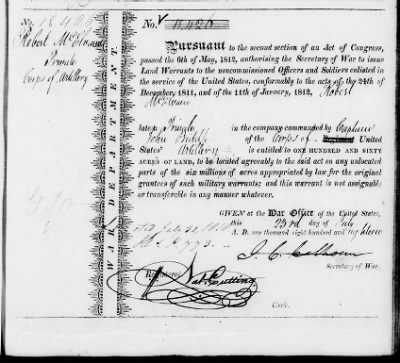 No. 18426
Robert McElwain
Private
Corps of Artillery
WAR DEPARTMENT.
No. 18,426
Pursuant to the second section of an Act of Congress,
passed the 6th of May, 1812, authorising the Secretary of War to issue
Land Warrants to the noncommissioned Officers and Soldiers enlisted in
the service of the United States, conformably to the acts of the 24th of
December, 1811, and of the 11th of January, 1812, Robert
McElwain
late a Private in the company commanded by Captain
John Biddle of the Corps of Regiment United
States' Artillery
is entitled to ONE HUNDRED AND SIXTY
ACRES OF LAND, to be located agreeably to the said act on any unlocated
parts of the six millions of acres appropriated by law for the original
grantees of such military warrants; and this warrant is not assignable
or transferable in any manner whatever.
GIVEN at the War Office of the United States,
this 23rd day of July
A. D. one thousand eight hundred and eighteen
J. C. Calhoun
Secretary of War.
Registered
Nat. Cutting
Clerk.